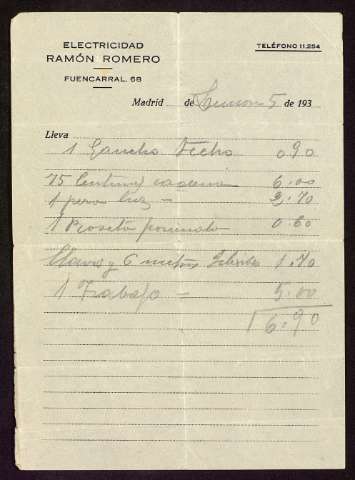 ELECTRICIDAD
RAMÓN ROMERO
FUENCARRAL, 68
TELÉFONO 11.254
Madrid de 5 de 193
Lleva
1 Gancho Techo 0 90
75 cadena 6.00
1 pera luz - 2,70
1 Roseta 0.60
Clavos y 6 metros 1.70
1 Trabajo = 5.00
16.90